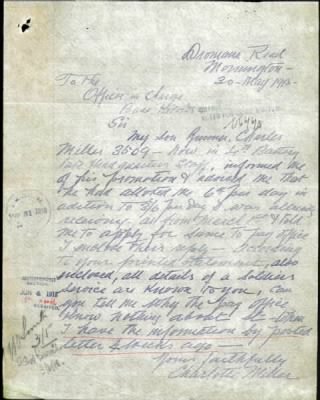 Dromana Road
Mornington
30 May 191
To the
Officer in Charge
Base Records
Sir
My son Gunner Charles
Miller 3569 - now in 4th Battery
informed me
of his promotion & advised me that
he had allotted me 6d per day in
adition to 3/ per day I was already
receiving all from March 1st & told
me to apply for same to pay office
I enclose their reply - According
to your printed statement, also
enclosed, all details of a soldiers
service are known to you, can
you tell me why the pay office
know nothing about it
I have the information by posted
letter 2 weeks ago -
Yours faithfully
Charlotte Miller